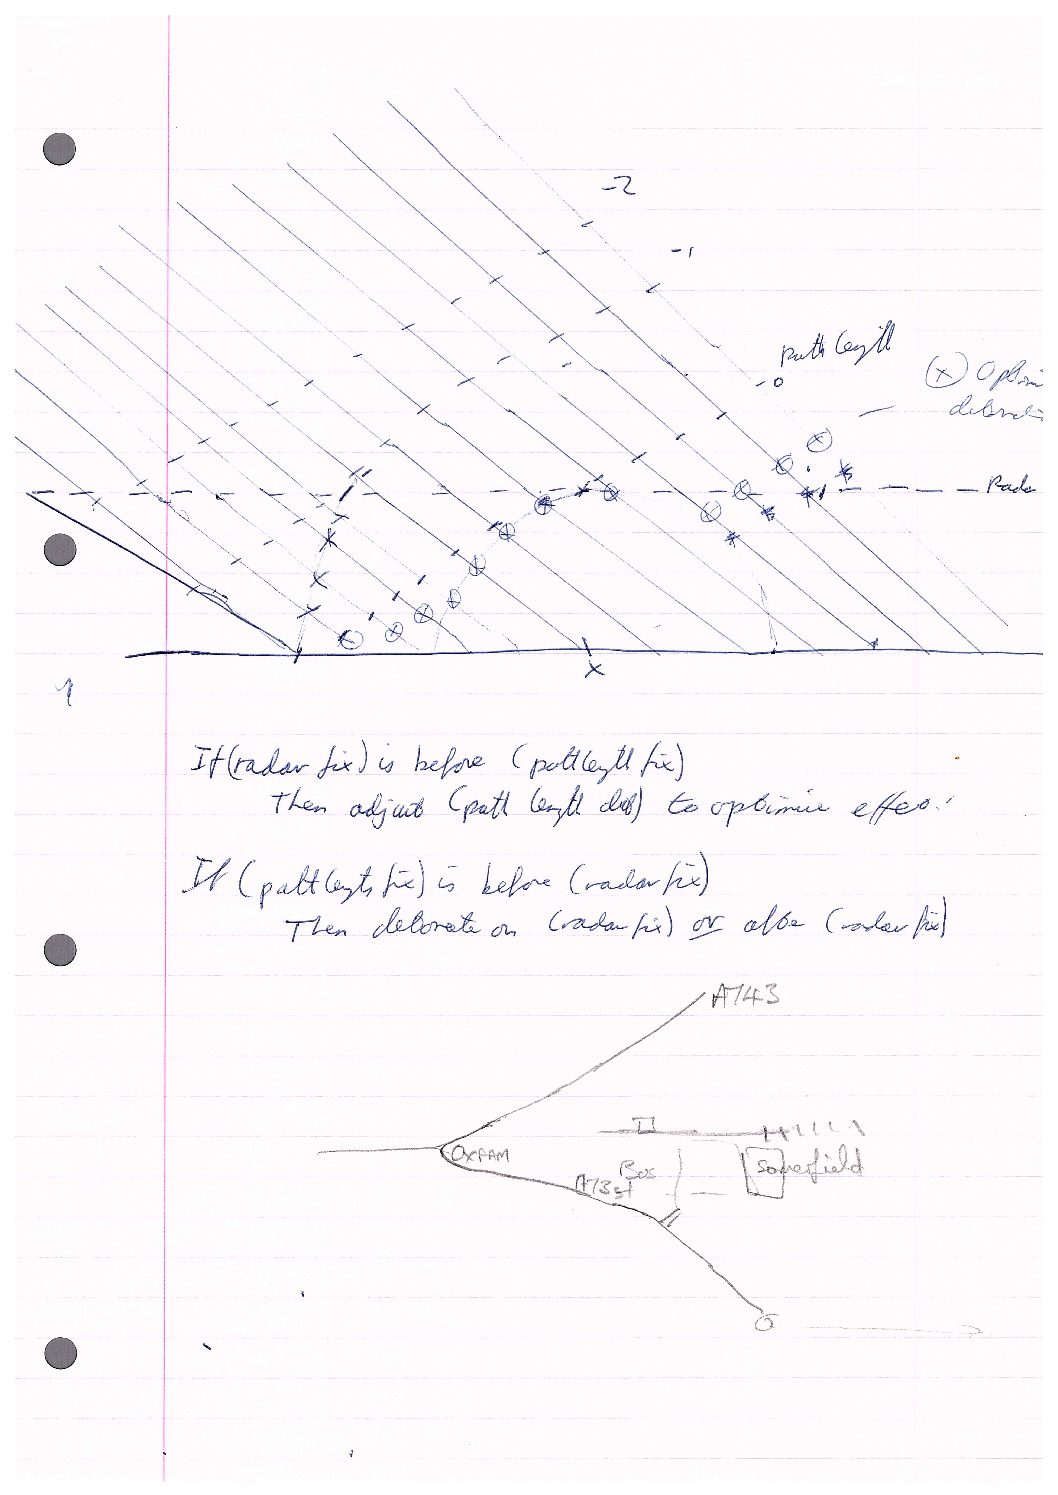 -2
-1
path length
-0
(x) Optim
detonati
Rada
x
If (radar fix) is before (path length fix)
Then adjust (path length det) to optimise effec
If (path length fix) is before (radar fix)
Then detonate on (radar fix) or after (radar fix)
A743
OXFAM
Somerfield
Bos